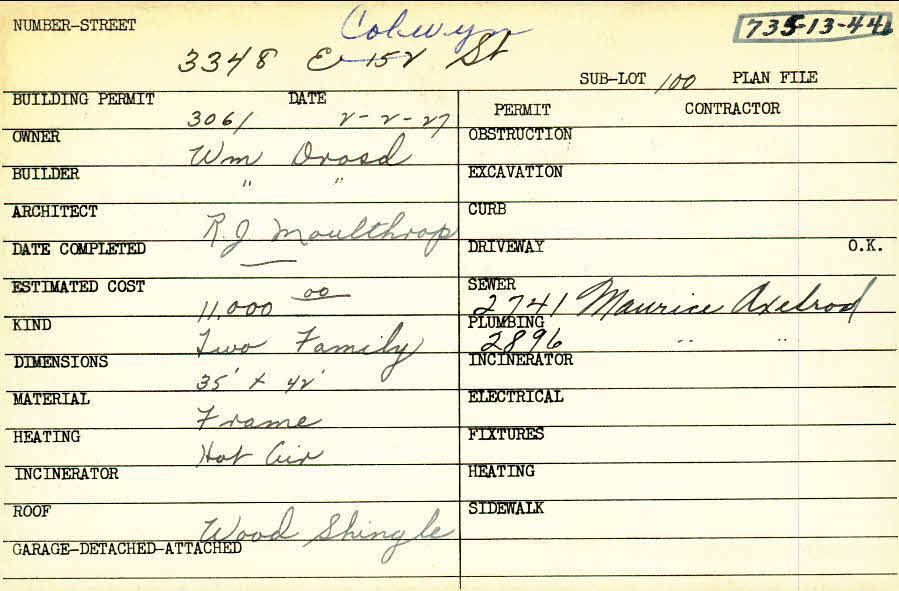 NUMBER-STREET
Colwyn
735-13-44
3348 E 152 St
SUB-LOT 100 PLAN FILE
BUILDING PERMIT DATE
3061 2-2-27
OWNER
Wm Orosd
BUILDER
" "
ARCHITECT
R.J Moulthrop
DATE COMPLETED
—
ESTIMATED COST
11,000 00
KIND
Two Family
DIMENSIONS
35' x 42'
MATERIAL
Frame
HEATING
Hot Air
INCINERATOR
ROOF
Wood Shingle
GARAGE-DETACHED-ATTACHED
PERMIT CONTRACTOR
OBSTRUCTION
EXCAVATION
CURB
DRIVEWAY O.K.
SEWER
2741 Maurice Axelrod
PLUMBING
2896 " "
INCINERATOR
ELECTRICAL
FIXTURES
HEATING
SIDEWALK